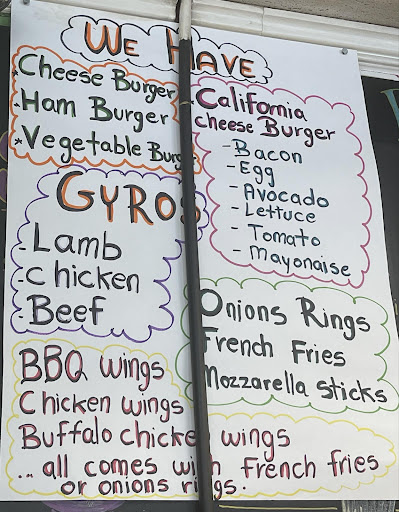 We Have
* Cheese Burger
* Ham Burger
* Vegetable Burger
California
cheese Burger
- Bacon
- Egg
- Avocado
- Lettuce
- Tomato
- Mayonaise
GYROS
- Lamb
- chicken
- Beef
Onions Rings
French Fries
Mozzarella sticks
BBQ wings
Chicken wings
Buffalo chicken wings
... all comes with French fries
or onions rings.